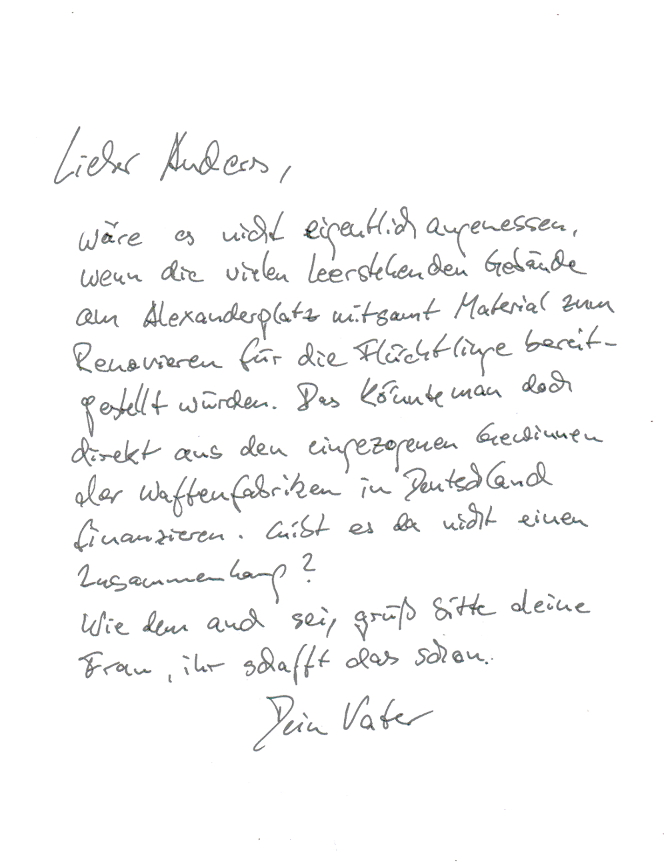 Lieber Anders,
wäre es nicht eigentlich angemessen,
wenn die vielen leerstehenden Gebäude
am Alexanderplatz mitsamt Material zum
Renovieren für die Flüchtlinge bereit-
gestellt würden. Das könnte man doch
direkt aus den eingezogenen Gewinnen
der Waffenfabriken in Deutschland
finanzieren. Gibt es da nicht einen
Zusammenhang?
Wie dem auch sei, grüß bitte deine
Frau, ihr schafft das schon.
Dein Vater